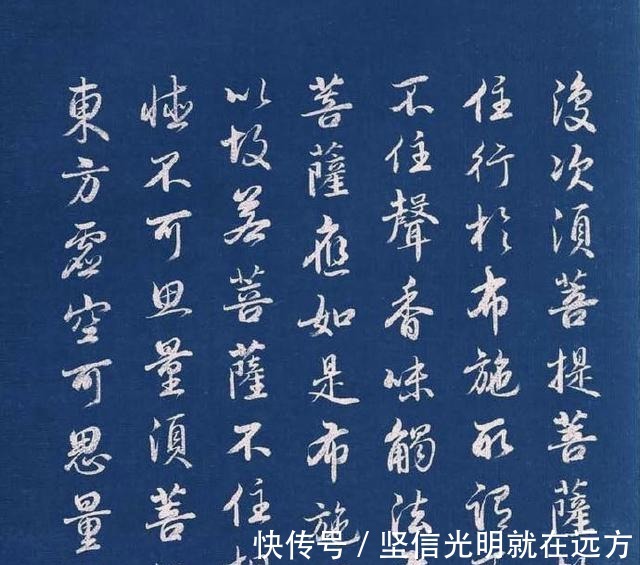 復次須菩提菩薩
住行於布施所謂
不住聲香味觸法
菩薩應如是布施
以故若菩薩不住
德不可思量須菩
東方虛空可思量
快传号 / 坚信光明就在远方